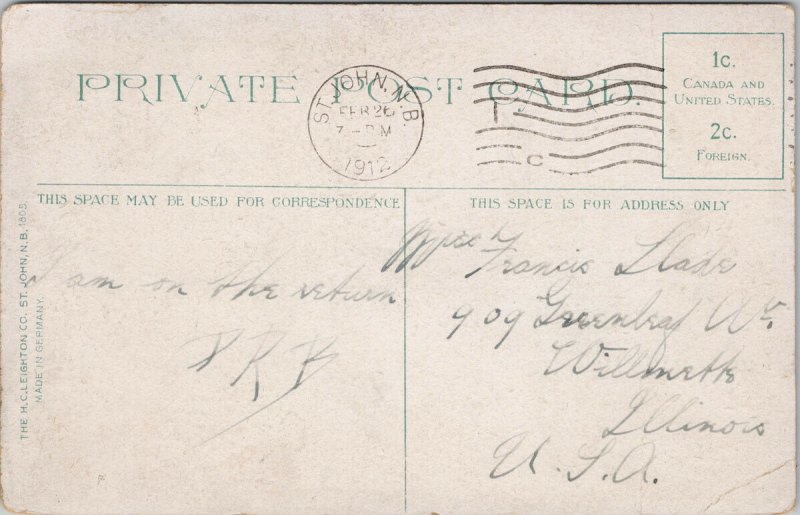 PRIVATE POST CARD.
ST. JOHN, N.B.
FEB 26
7-PM
1912
T
C
1c.
CANADA AND
UNITED STATES.
2c.
FOREIGN.
THIS SPACE MAY BE USED FOR CORRESPONDENCE
THIS SPACE IS FOR ADDRESS ONLY
I am on the return
P R B
Francis Slade
909 Greenleaf Av.
Willmette
Illinois
U. S. A.
THE H.C. LEIGHTON CO. ST. JOHN, N.B. 1805
MADE IN GERMANY.